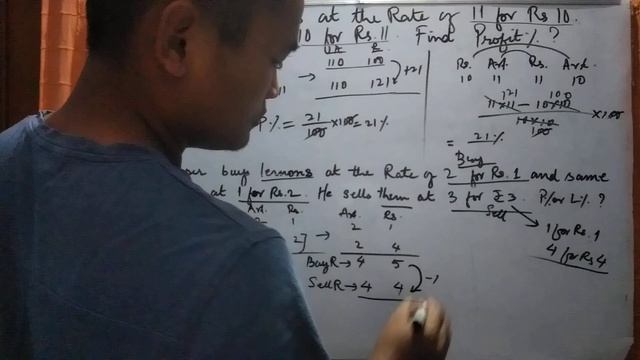 at the Rate of 11 for Rs 10.
10 for Rs. 11. Find Profit % ?
Art. Rs.
110 100
→ 110 121 +21
P% = 21/100 × 100 = 21%
Rs. Art. Rs. Art.
10 11 11 10
121 100
11×11 – 10×10 × 100
10×10
100
= 21%
Buy
buy lemons at the Rate of 2 for Rs. 1 and same
at 1 for Rs. 2. He sells them at 3 for ₹3. P/or L% ?
Sell
Art. Rs. Art. Rs.
2 1 2 1
2] → 2 4
Buy R → 4 5
Sell R → 4 4 -1
1 for Rs. 1
4 for Rs 4